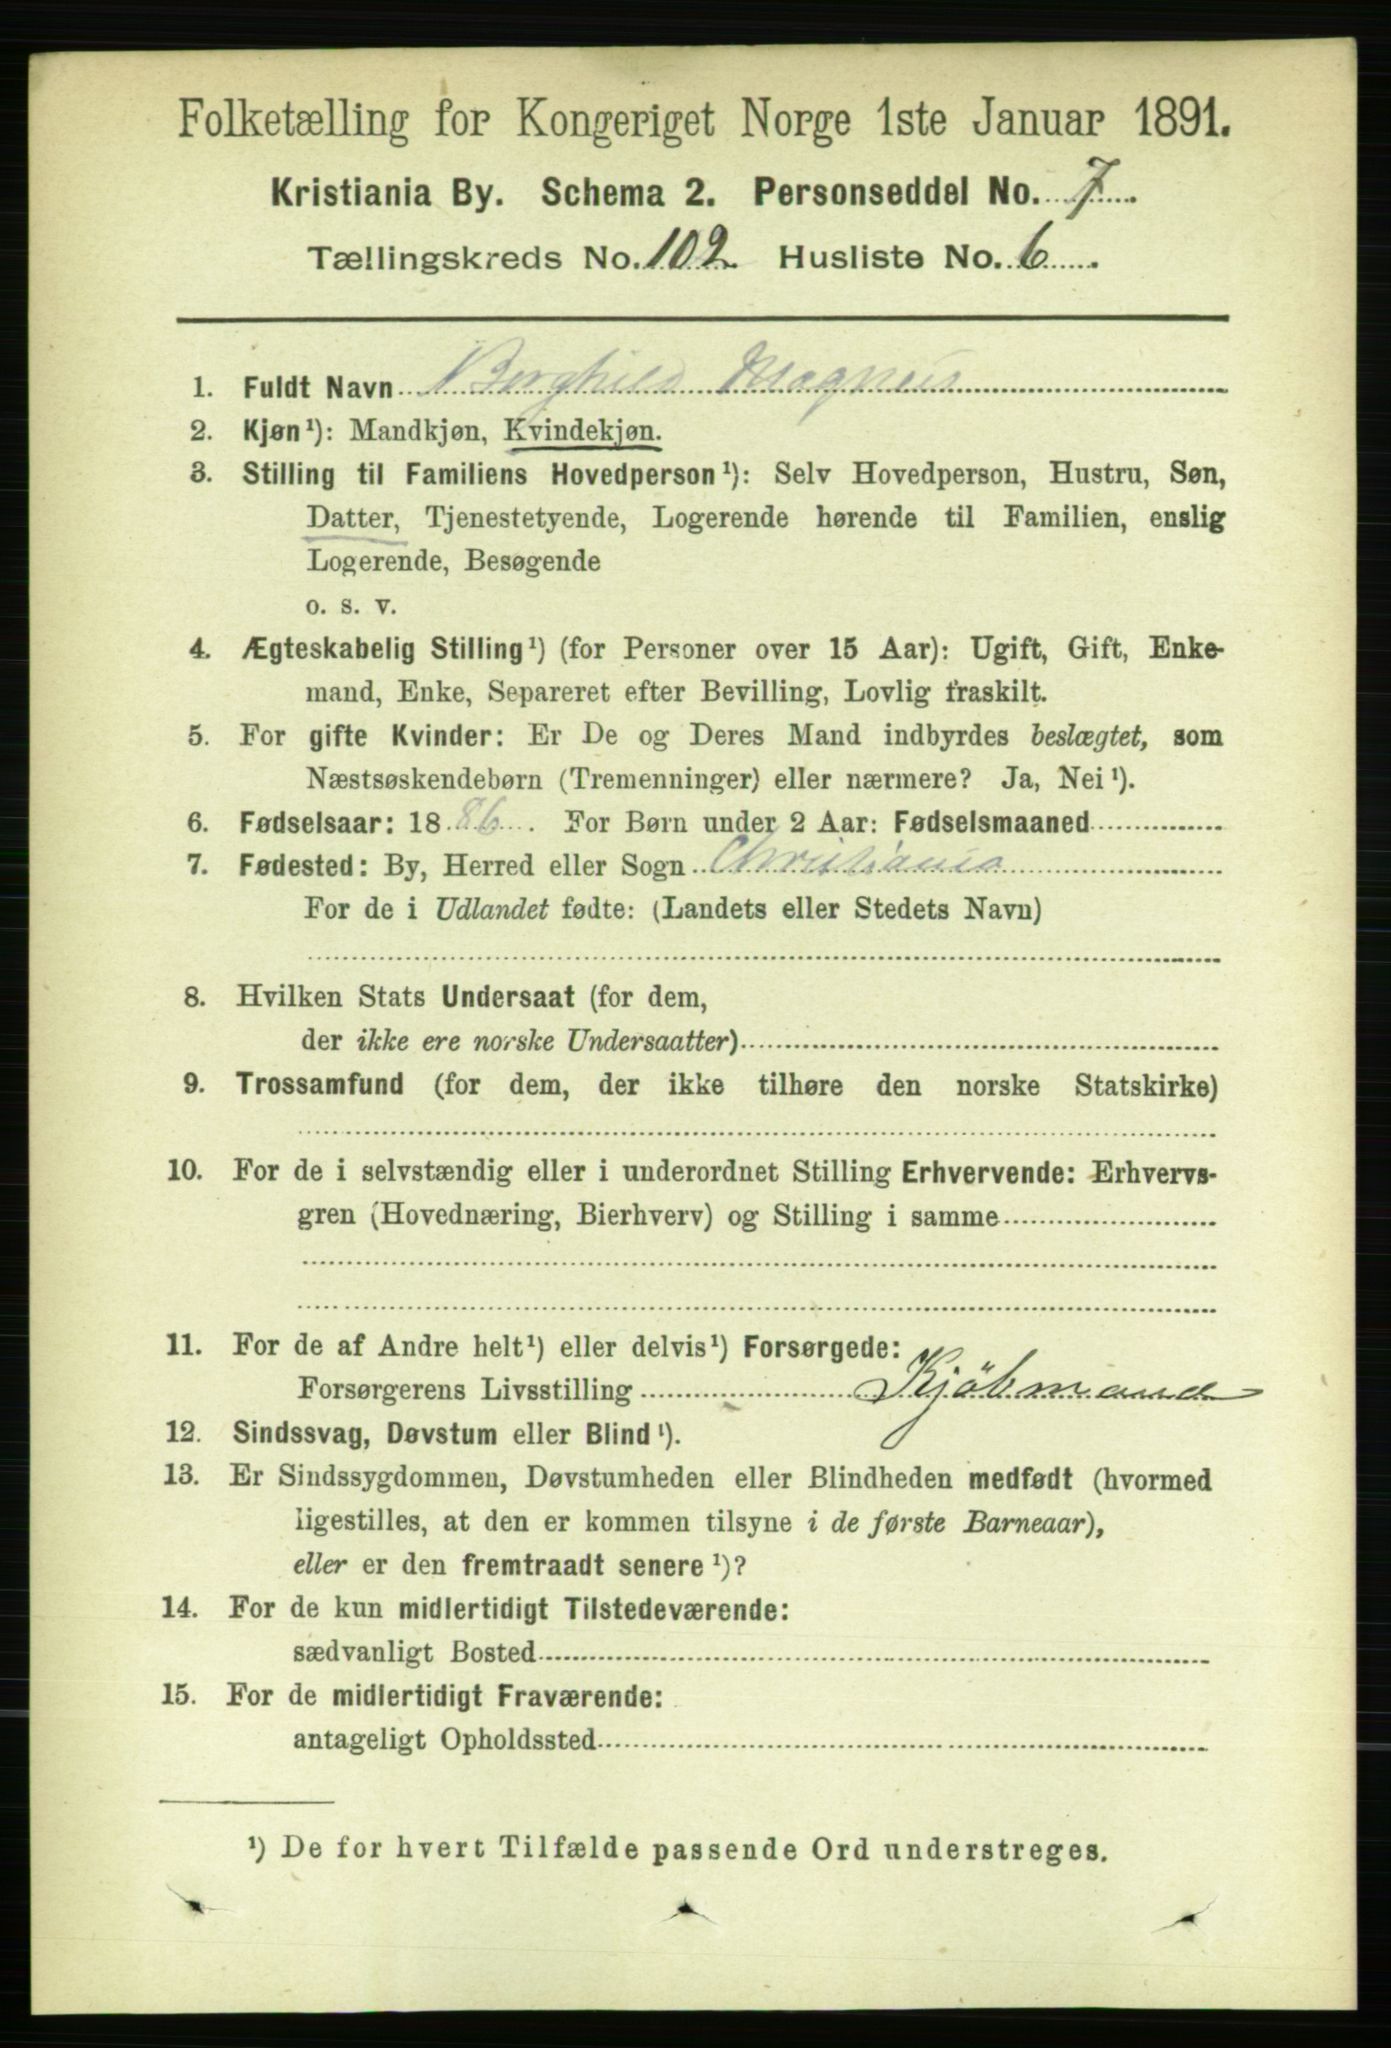 Folketælling for Kongeriget Norge 1ste Januar 1891.
Kristiania By. Schema 2. Personseddel No. 7
Tællingskreds No. 102 Husliste No. 6
1. Fuldt Navn Borghild Magnus
2. Kjøn¹): Mandkjøn, Kvindekjøn.
3. Stilling til Familiens Hovedperson¹): Selv Hovedperson, Hustru, Søn,
Datter, Tjenestetyende, Logerende hørende til Familien, enslig
Logerende, Besøgende
o. s. v.
4. Ægteskabelig Stilling¹) (for Personer over 15 Aar): Ugift, Gift, Enke-
mand, Enke, Separeret efter Bevilling, Lovlig fraskilt.
5. For gifte Kvinder: Er De og Deres Mand indbyrdes beslægtet, som
Næstsøskendebørn (Tremenninger) eller nærmere? Ja, Nei¹).
6. Fødselsaar: 1886. For Børn under 2 Aar: Fødselsmaaned
7. Fødested: By, Herred eller Sogn Christiania
For de i Udlandet fødte: (Landets eller Stedets Navn)
8. Hvilken Stats Undersaat (for dem,
der ikke ere norske Undersaatter)
9. Trossamfund (for dem, der ikke tilhøre den norske Statskirke)
10. For de i selvstændig eller i underordnet Stilling Erhvervende: Erhvervs-
gren (Hovednæring, Bierhverv) og Stilling i samme
11. For de af Andre helt¹) eller delvis¹) Forsørgede:
Forsørgerens Livsstilling Kjöbmand
12. Sindssvag, Døvstum eller Blind¹).
13. Er Sindssygdommen, Døvstumheden eller Blindheden medfødt (hvormed
ligestilles, at den er kommen tilsyne i de første Barneaar),
eller er den fremtraadt senere¹)?
14. For de kun midlertidigt Tilstedeværende:
sædvanligt Bosted
15. For de midlertidigt Fraværende:
antageligt Opholdssted
¹) De for hvert Tilfælde passende Ord understreges.